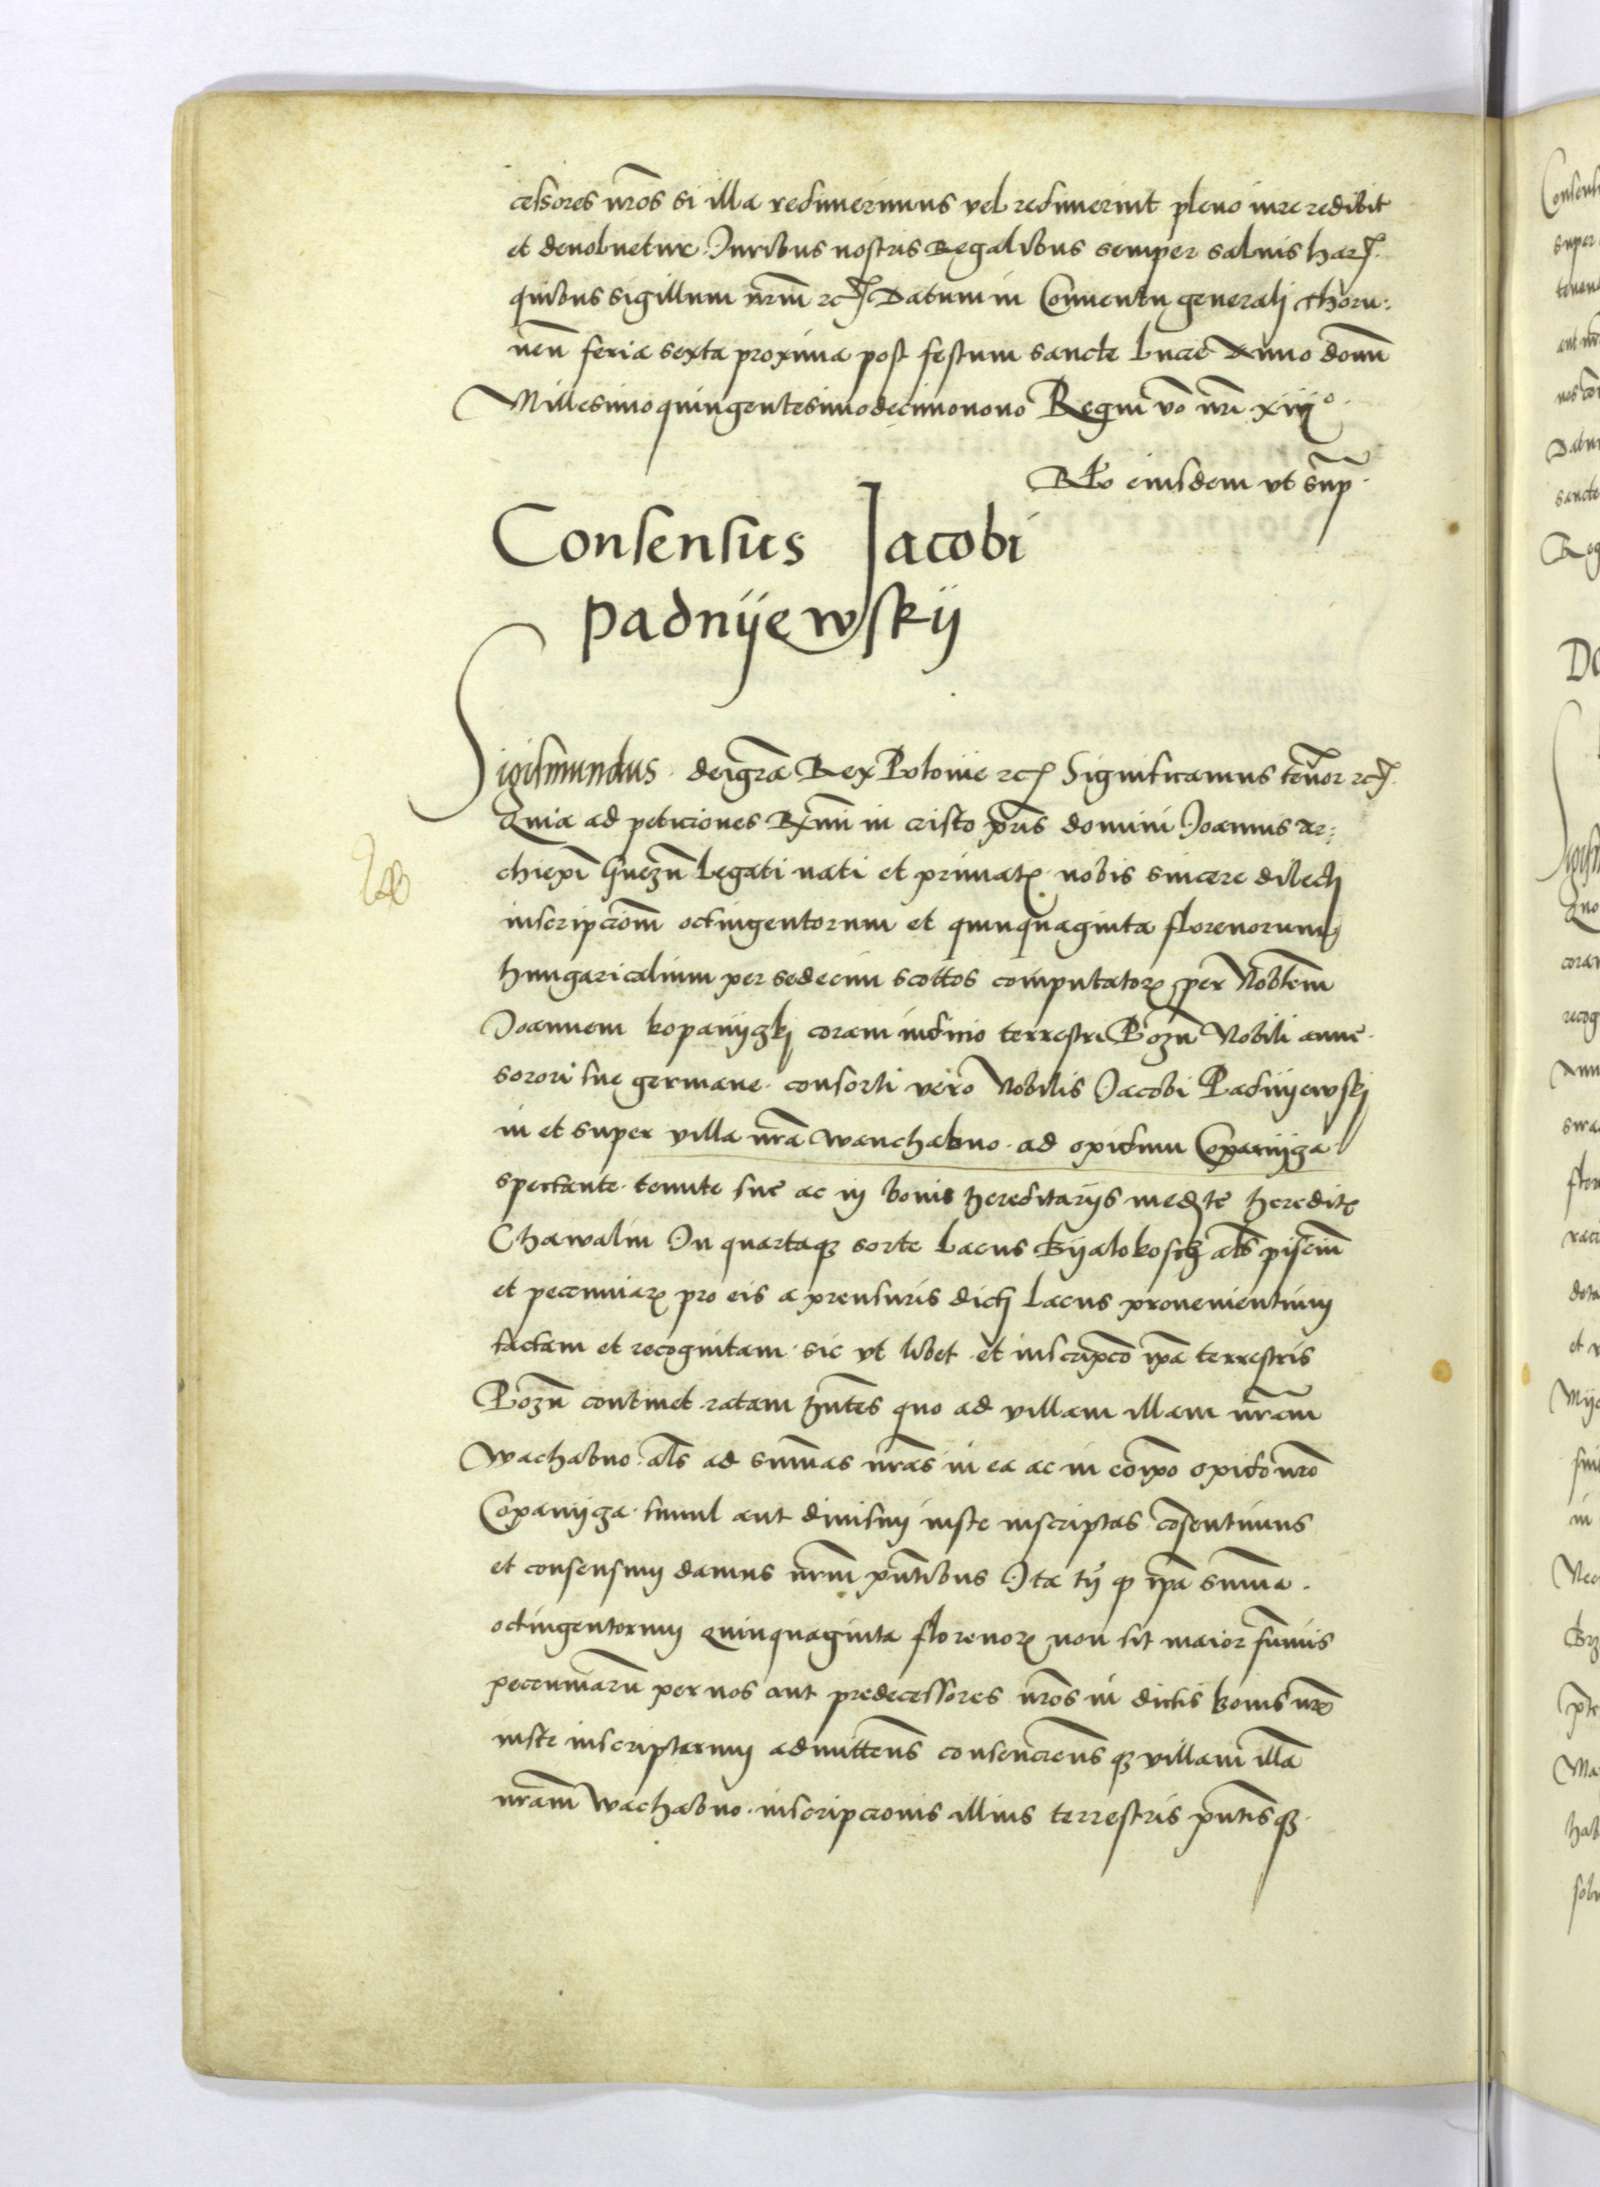 cessores nr̃os si illa redimerimus vel redimerint pleno iure redibit
et devolvetur Iuribus nostris Regalibus semper salvis har.
quibus sigillum nr̃m etc Datum in Conventu generali Thoru:
nen̄ feria sexta proxima post festum sancte Luce Anno domi
Millesimoquingentesimodecimonono Regni vo nr̃i xiij°
Rlo eiusdem ut sup̃
Consensus Jacobi
Padnÿewskÿ
Sigismundus deigr̃a Rex Polonie etc Significamus teno̅r etc
Quia ad peticiones Rmi in cristo pr̃is domini Ioannis ar:
chiepi Gnezn̄ Legati nati et primat̃ nobis sincere dilecti
inscripciom̄ octingentorum et quinquaginta florenorum
hungaricalium per sedecim scottos computator̃ per Nobilem̄
Ioannem kopanÿczkj coram iudicio terrestri Pozn̄ Nobili anne
sorori sue germane consorti vero Nobilis Iacobi Padnÿewskj
in et super villa nr̃a wanchabno ad opidum Copanÿcza
spectante tenute sue ac in bonis hereditariis medᵗe heredit̃
Chawalin In quartaq; sorte Lacus Bÿalokosch al̃s pisciu̅
et pecuniar̃ pro eis a prensuris dicti Lacus provenientium
factam et recognitam sic ut libet et inscripco̅ ip̃a terrestris
Pozn̄ continet ratam hn̄tes quo ad villam illam nr̃am
wachabno al̃s ad summas nr̃as in ea ac in co̅ipo opido nr̃o
Copanÿcza simul aut divisim iuste inscriptas co̅sentimus
et consensum damus nr̃m pn̄tibus Ita tn̄ q ip̃a summa
octingentorum quinquaginta florenor̃ non sit maior su̅mis
pecuniaru̅ per nos aut predecessores nr̃os in dictis bonis nr̃is
iuste inscriptarum admitten̄s consencien̄sq; villam illa̅
nr̃am wachabno inscripcionis illius terrestris pn̄tisq;